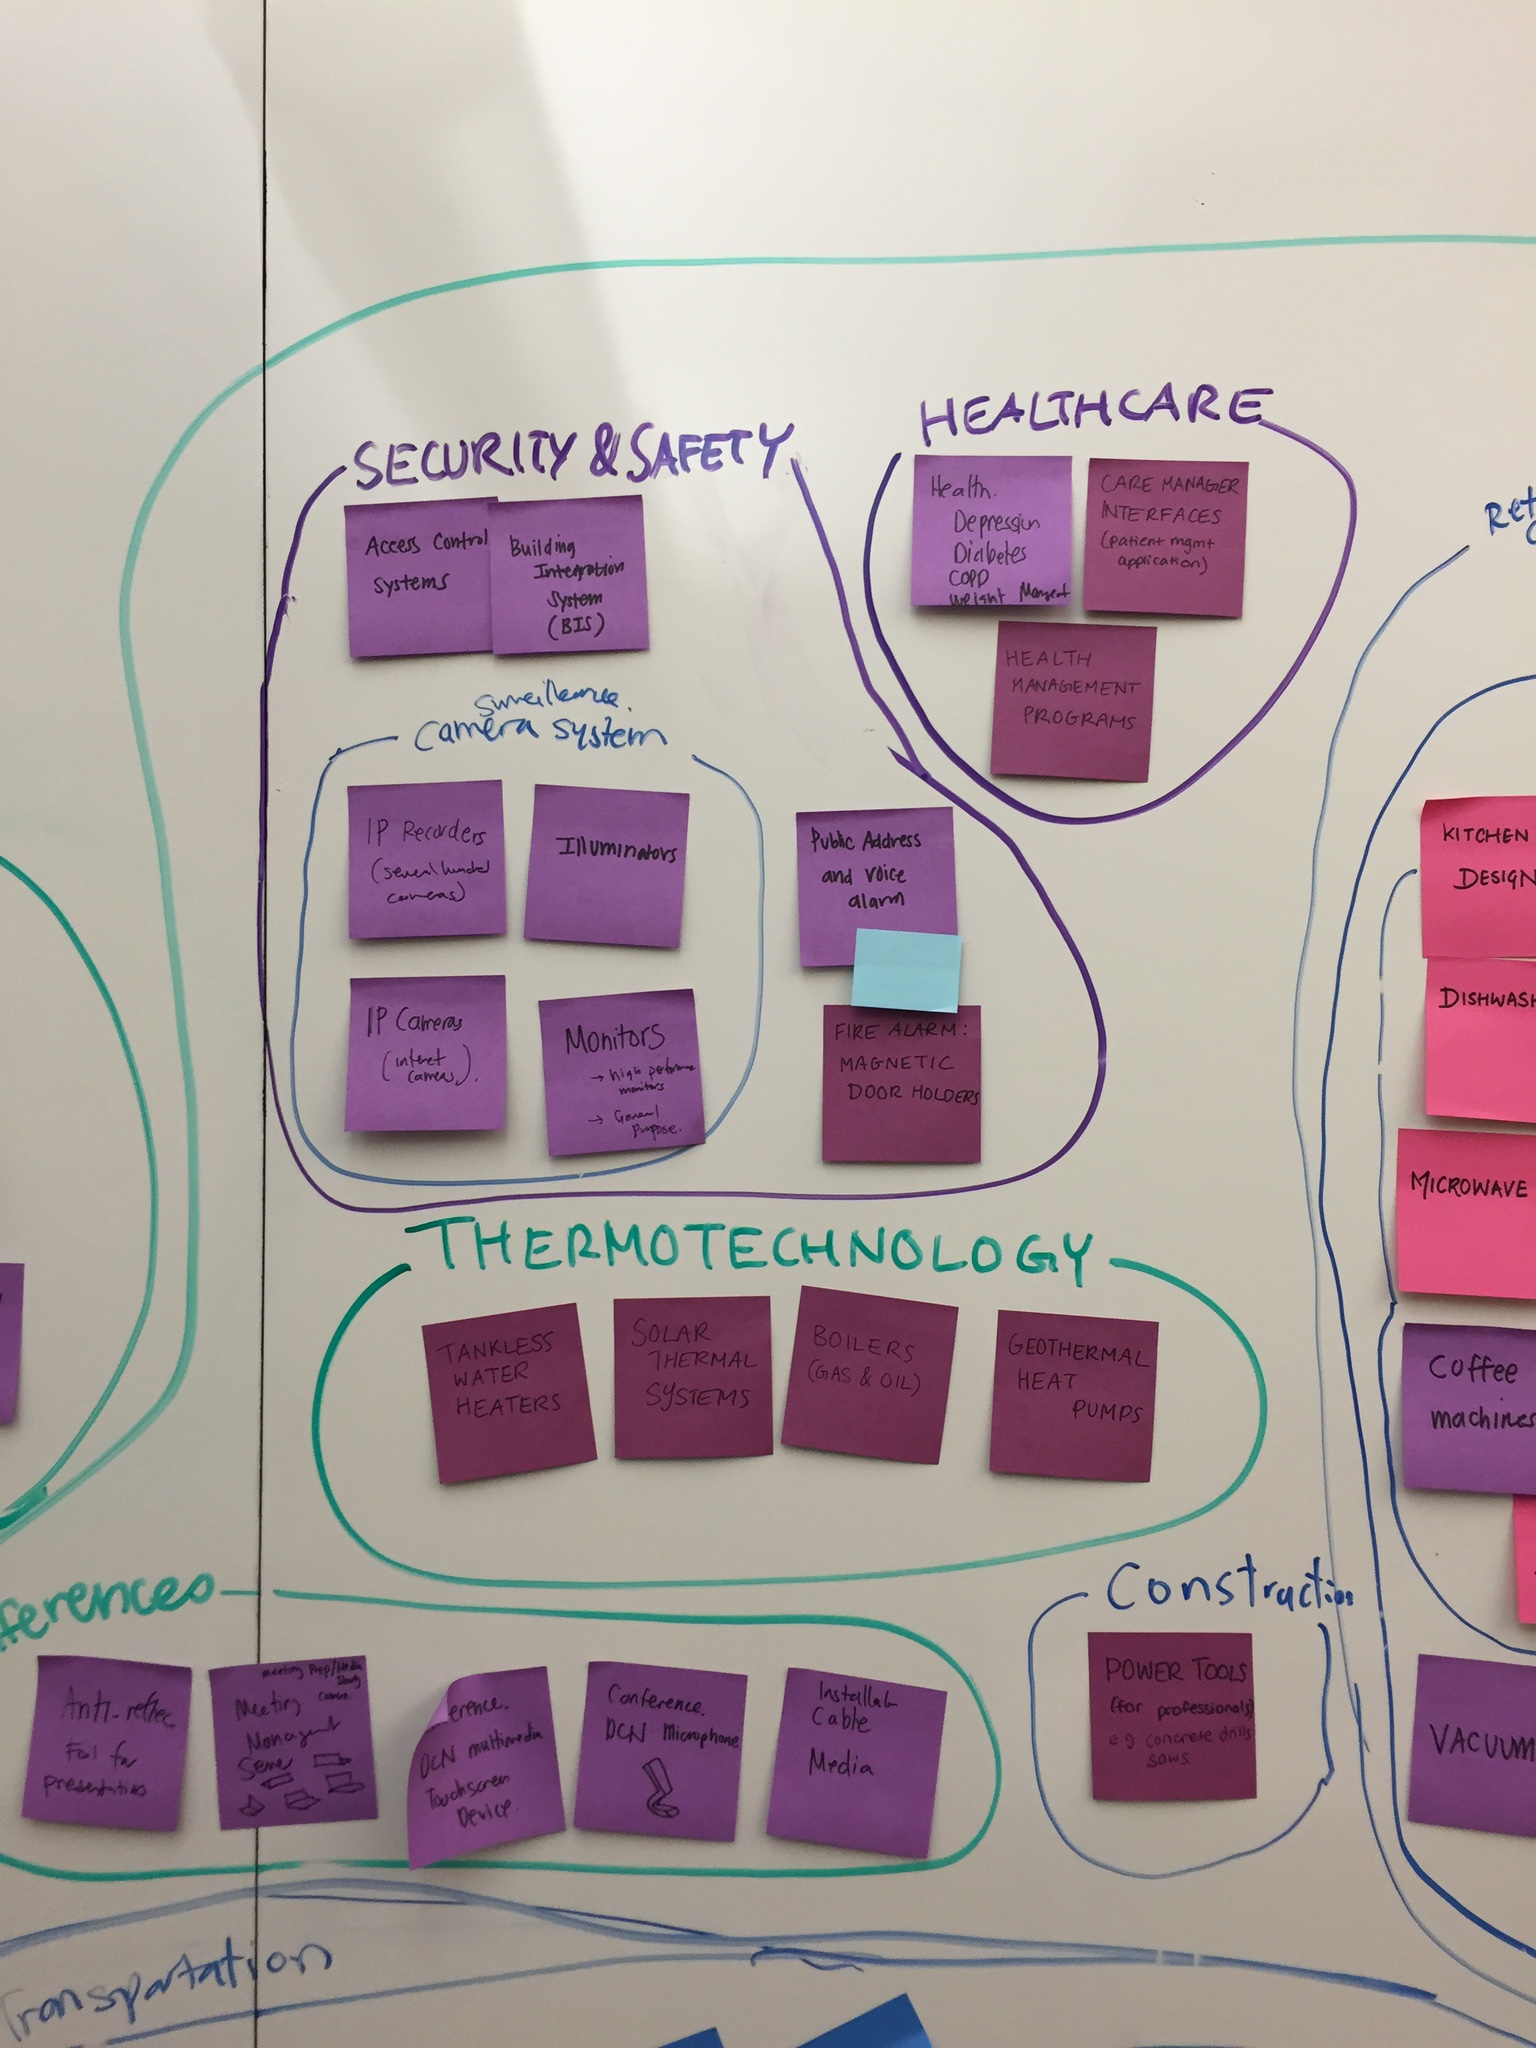 SECURITY & SAFETY
Access Control
Systems
Building
Integration
System
(BIS)
Surveillance
Camera system
IP Recorders
(several hundred
cameras)
Illuminators
IP Cameras
(internet
cameras).
Monitors
→ high performance
monitors
→ General
purpose.
Public Address
and voice
alarm
FIRE ALARM:
MAGNETIC
DOOR HOLDERS
HEALTHCARE
Health.
Depression
Diabetes
COPD
Weight
CARE MANAGER
INTERFACES
(patient mgmt
application)
HEALTH
MANAGEMENT
PROGRAMS
KITCHEN
DESIGN
DISHWASH
MICROWAVE
Coffee
machines
VACUUM
THERMOTECHNOLOGY
TANKLESS
WATER
HEATERS
SOLAR
THERMAL
SYSTEMS
BOILERS
(GAS & OIL)
GEOTHERMAL
HEAT
PUMPS
ferences
Anti-reflec
for
presentation
Meeting Prep/Media
Meeting
erence.
DCN multimedia
Touchscreen
Device.
Conference.
DCN Microphone
Cable
Media
Construction
POWER TOOLS
(for professionals)
e.g concrete drills
saws
Transportation